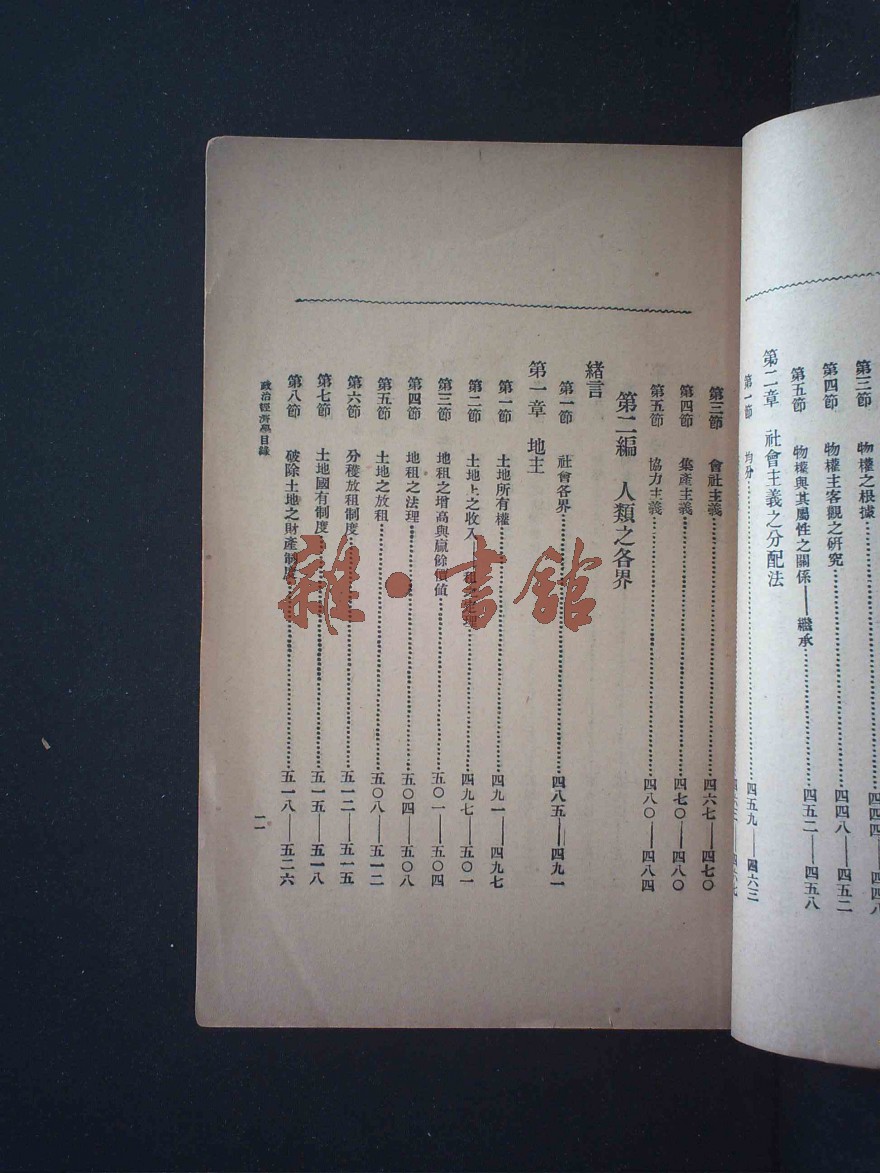 第三節
第四節 物權主客觀之研究……四四八——四五二
第五節 物權與其屬性之關係——繼承……四五二——四五八
第二章 社會主義之分配法
第一節 均分……四五九——四六三
第三節 會社主義……四六七——四七〇
第四節 集產主義……四七〇——四八〇
第五節 協力主義……四八〇——四八四
第二編 人類之各界
緒言
第一節 社會各界……四八五——四九一
第一章 地主
第一節 土地所有權……四九一——四九七
第二節 土地上之收入——……四九七——五〇一
第三節 地租之增高與贏餘價值……五〇一——五〇四
第四節 地租之法理……五〇四——五〇八
第五節 土地之放租……五〇八——五一二
第六節 分穫放租制度……五一二——五一五
第七節 土地國有制度……五一五——五一八
第八節 破除土地之財產制度……五一八——五二六
政治經濟學目錄 一一
雜·書館